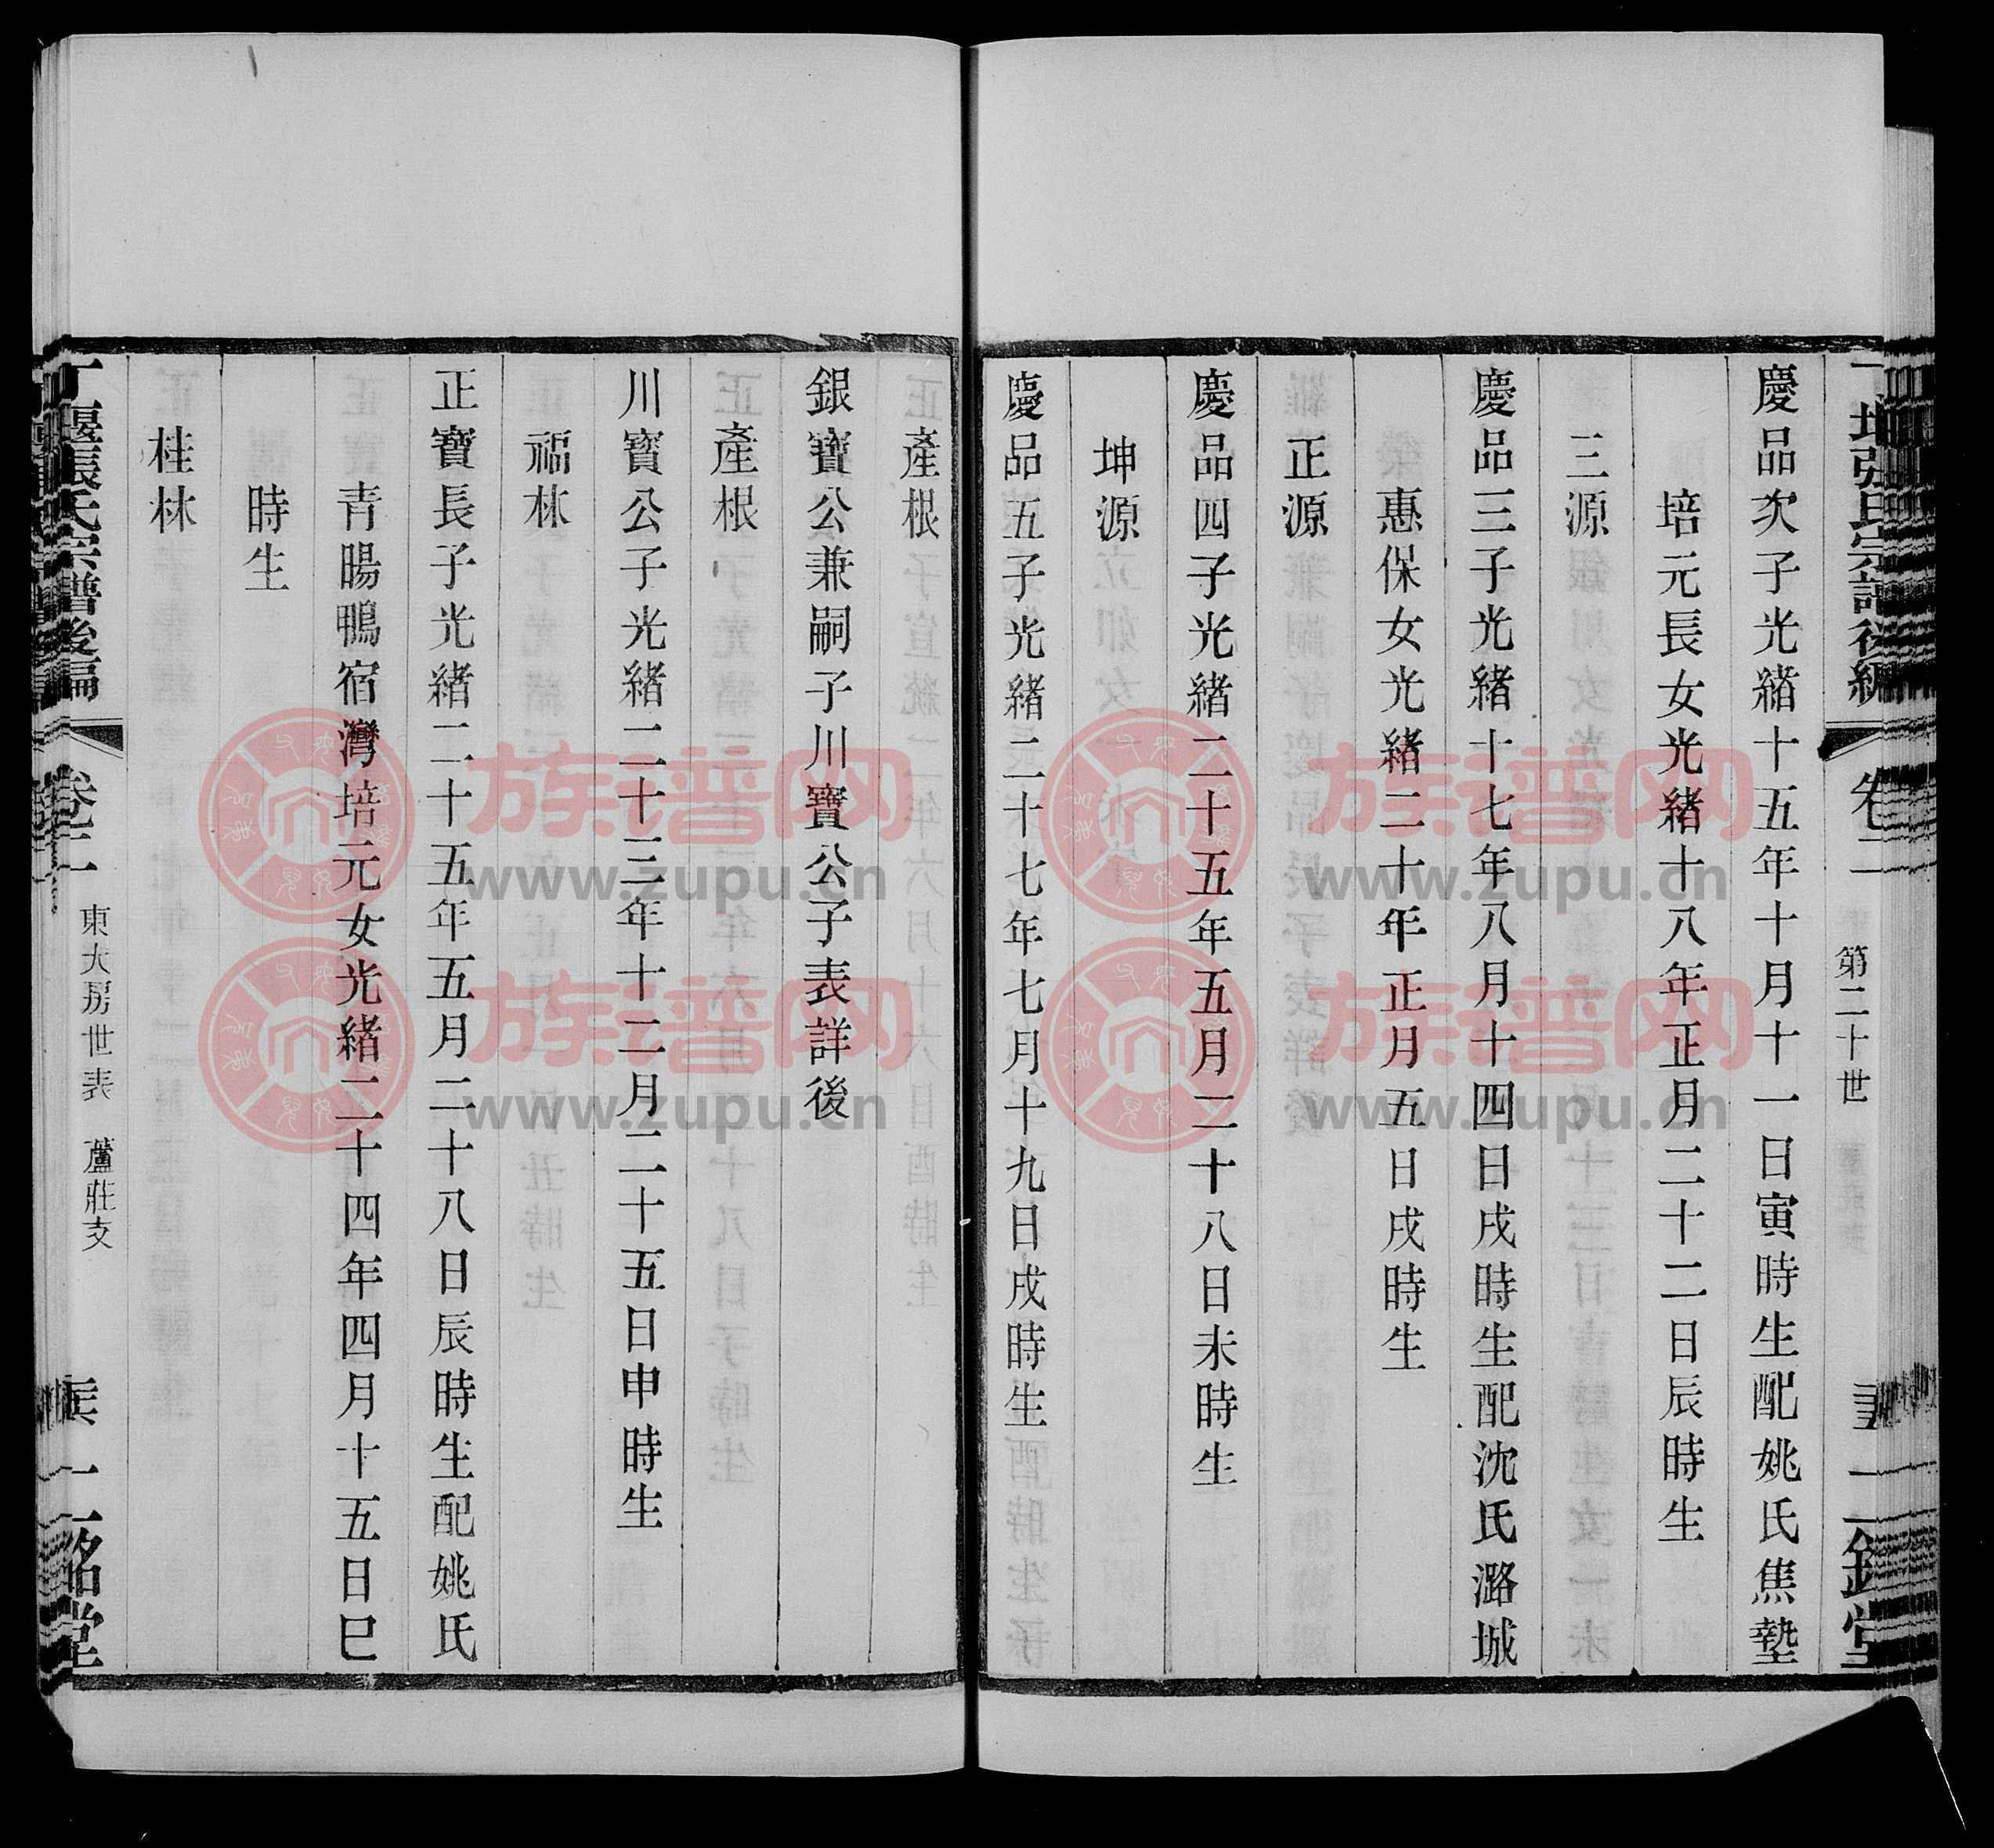 第二十世
慶品次子光緒十五年十月十一日寅時生配姚氏焦墊
培元長女光緒十八年正月二十二日辰時生
三源
慶品三子光緒十七年八月十四日戌時生配沈氏潞城
惠保女光緒二十年正月五日戌時生
正源
慶品四子光緒二十五年五月二十八日未時生
坤源
慶品五子光緒二十七年七月十九日戌時生
產根
銀寶公兼嗣子川寶公子表詳後
產根
川寶公子光緒二十三年十二月二十五日申時生
福林
正寶長子光緒二十五年五月二十八日辰時生配姚氏
青暘鴨宿灣培元女光緒二十四年四月十五日巳
時生
桂林
丁堰張氏宗譜後編 卷二 東大房世表 蘆莊支 銘堂
族谱网
www.zupu.cn
族谱网
www.zupu.cn
族谱网
www.zupu.cn
族谱网
www.zupu.cn